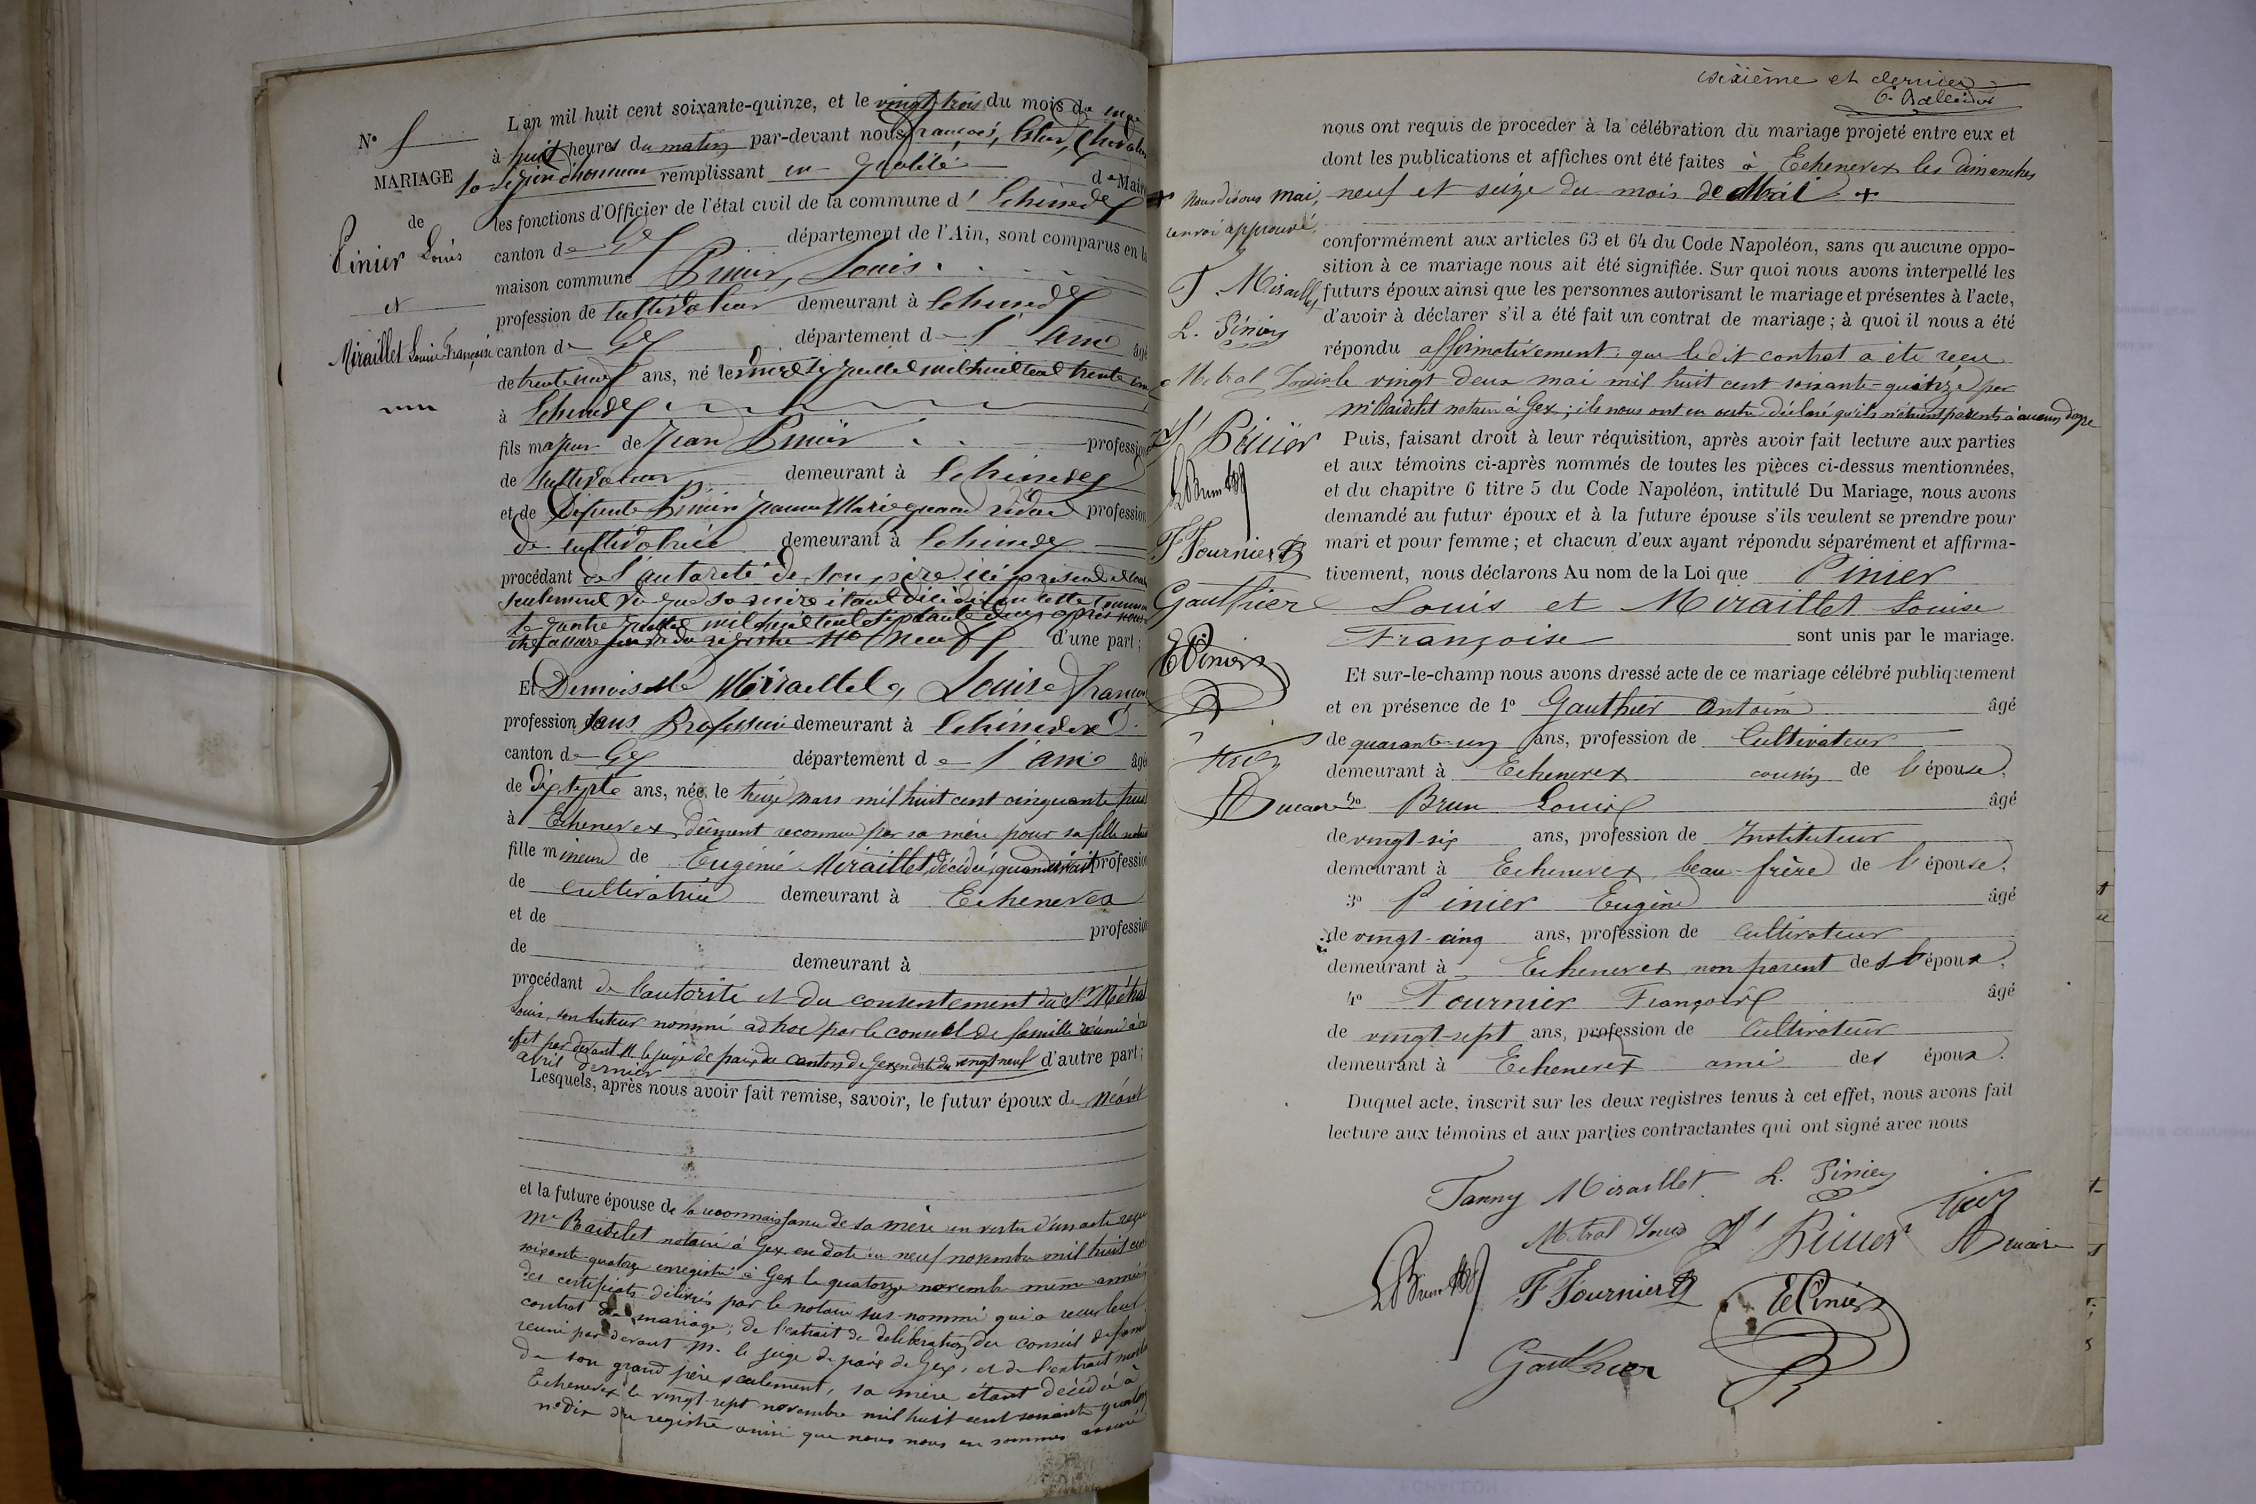 N°
MARIAGE
de
Pinier Louis
et
Miraillet Louise Françoise
L'an mil huit cent soixante-quinze, et le vingt trois du mois de mai
à huit heures du matin par-devant nous François,
remplissant en qualité de Maire
les fonctions d'Officier de l'état civil de la commune d'Echenevex
canton de Gex département de l'Ain, sont comparus en la
maison commune Pinier, Louis.
profession de cultivateur demeurant à Echenevex
canton de Gex département de l'ain âgé
de trente neuf ans, né le juillet mil huit cent trente
à Echenevex
fils majeur de Jean Pinier profession
de cultivateur demeurant à Echenevex
et de Défunte Pinier Jeanne Marie quand vivait profession
de cultivatrice demeurant à Echenevex
procédant de l'autorité de son père ici présent
seulement vu que sa mère étant décédée en cette commune
le quatre juillet mil huit cent septante deux après nous
registre N° neuf d'une part;
Et Demoiselle Miraillet, Louise Françoise
profession sans Profession demeurant à Echenevex
canton de Gex département de l'ain âgée
de Dix sept ans, née le treize mars mil huit cent cinquante
à Echenevex dûment reconnue par sa mère pour sa fille
fille mineure de Eugénie Miraillet, décédée, quand vivait profession
de cultivatrice demeurant à Echenevex
et de profession
de demeurant à
procédant de l'autorité et du consentement du Sr Métral
Louis, son tuteur nommé ad hoc par le conseil de famille réuni à cet
effet par devant M. le juge de paix du canton de Gex en date du vingt neuf d'autre part;
avril dernier
Lesquels, après nous avoir fait remise, savoir, le futur époux de Néant
et la future épouse de la reconnaissance de sa mère en vertu d'un acte reçu
Me Baidelet notaire à Gex en date du neuf novembre mil huit cent
soixante-quatorze enregistré à Gex le quatorze novembre même année
des certificats délivrés par le notaire sus-nommé qui a reçu leur
contrat de mariage; de l'extrait de délibération du conseil de famille
réuni par devant M. le juge de paix de Gex, et de l'extrait
de son grand père seulement, sa mère étant décédée à
Echenevex le vingt-sept novembre mil huit cent soixante quatorze
n° dix du registre ainsi que nous nous en sommes assuré
sixième et dernier
nous ont requis de proceder à la célébration du mariage projeté entre eux et
dont les publications et affiches ont été faites à Echenevex les dimanches
neuf et seize du mois de +
+ Nous disons mai,
renvoi approuvé.
conformément aux articles 63 et 64 du Code Napoléon, sans qu'aucune oppo-
sition à ce mariage nous ait été signifiée. Sur quoi nous avons interpellé les
futurs époux ainsi que les personnes autorisant le mariage et présentes à l'acte,
d'avoir à déclarer s'il a été fait un contrat de mariage; à quoi il nous a été
répondu affirmativement: que ledit contrat a été reçu
le vingt-deux mai mil huit cent soixante-quinze par
Me Baidelet notaire à Gex; ils nous ont en outre déclaré qu'ils n'étaient parents à aucun degré
Puis, faisant droit à leur réquisition, après avoir fait lecture aux parties
et aux témoins ci-après nommés de toutes les pièces ci-dessus mentionnées,
et du chapitre 6 titre 5 du Code Napoléon, intitulé Du Mariage, nous avons
demandé au futur époux et à la future épouse s'ils veulent se prendre pour
mari et pour femme; et chacun d'eux ayant répondu séparément et affirma-
tivement, nous déclarons Au nom de la Loi que Pinier
Louis et Miraillet Louise
Françoise sont unis par le mariage.
Et sur-le-champ nous avons dressé acte de ce mariage célébré publiquement
et en présence de 1° Gauthier Antoine âgé
de quarante-un ans, profession de Cultivateur
demeurant à Echenevex cousin de l'épouse,
2° Brun Louis âgé
de vingt-six ans, profession de Instituteur
demeurant à Echenevex beau-frère de l'épouse,
3° Pinier Eugène âgé
de vingt-cinq ans, profession de cultivateur
demeurant à Echenevex non parent des époux,
4° Fournier François âgé
de vingt-sept ans, profession de Cultivateur
demeurant à Echenevex ami des époux.
Duquel acte, inscrit sur les deux registres tenus à cet effet, nous avons fait
lecture aux témoins et aux parties contractantes qui ont signé avec nous
F. Miraillet
L. Pinier
Métral Louis
Pinier
L Brun
F Fournier
Gauthier
E Pinier
Ducaire
Fanny Miraillet L. Pinier
Métral Louis Pinier Ducaire
L Brun F Fournier E Pinier
Gauthier